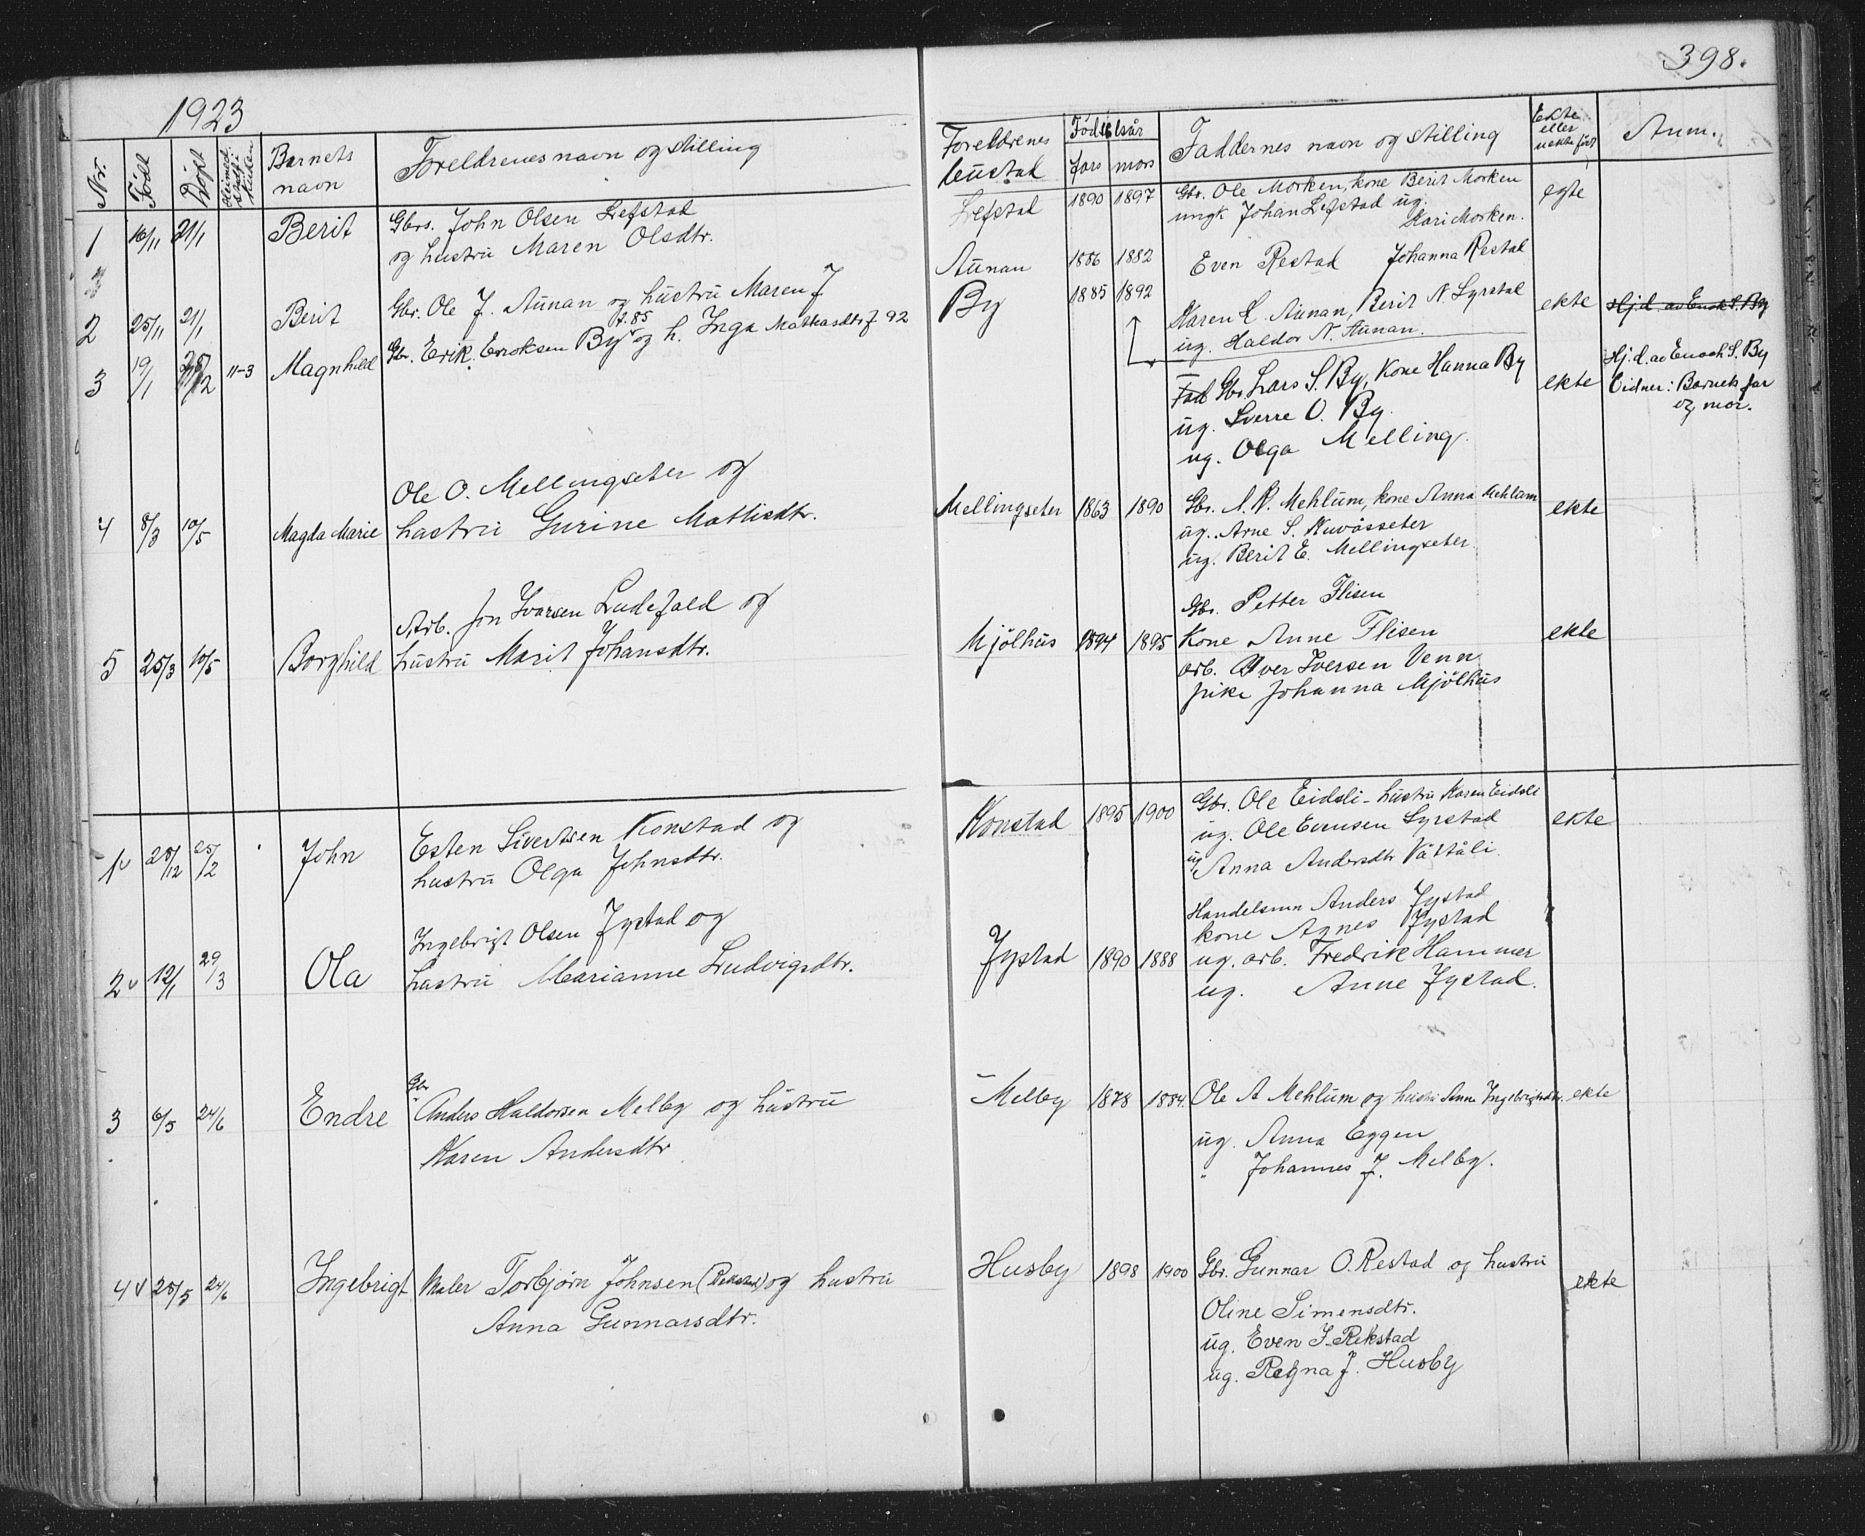 398.
1923
Nr.
Født
Døpt
Barnets navn
Foreldrenes navn og stilling
Foreldrenes bustad
Fødselsår
fars
mors
Faddernes navn og stilling
Ekte eller uekte født
Anm.
1 16/11 21/1 Berit
Gbrs. John Olsen Lefstad
og hustru Maren Olsdtr.
Lefstad 1890 1897
Gbr. Ole Morken, kone Berit Morken
ungk Johan Lefstad ug.
Kari Morken.
egte
2 25/11 21/1 Berit
Gbr. Ole J. Aunan og hustru Maren J
Aunan 1886 1882
Even Restad Johanna Restad
Karen L. Aunan, Berit N. Syrstad
ug. Haldor N. Aunan.
ekte
Hj.d. av Enok S. By
3 19/1 25/2 11-3 Magnhild
f. 85
Gbr. Erik Enoksen By og h. Inga Matkasdtr f 92
By 1885 1892
Fad Gbr Lars S. By, Kone Hanna By
ug. Sverre O. By
ug. Olga Melling.
ekte
Hj.d. av Enoch S. By
Vidner: Barnets far
og mor.
4 8/3 10/5 Magda Marie
Ole O. Mellingseter og
hustru Gurine Mattisdtr.
Mellingseter 1863 1890
Gbr. A. P. Mehlum, kone Anna Mehlum
ug. Arne S. Kuvåsseter
ug. Berit E. Mellingseter
ekte
5 25/3 10/5 Borghild
Arb. Jon Ivarsen Ludefald og
hustru Marit Johansdtr.
Mjølhus 1894 1895
Gbr. Petter Flisen
Kone Anne Flisen
arb. Iver Iversen Venn
pike Johanna Mjølhus
ekte
1v 28/12 25/2 John
Esten Sivertsen Konstad og
hustru Olga Johnsdtr.
Konstad 1895 1900
Gbr. Ole Eidsli - hustru Karen Eidsli
ug. Ole Evensen Syrstad
ug Anna Andersdtr Våttåli.
ekte
2v 12/1 29/3 Ola
Ingebrigt Olsen Jystad og
hustru Marianne Ludvigsdtr.
Jystad 1890 1888
Handelsmn Anders Jystad
kone Agnes Jystad
ug. arb. Fredrik Hammer
ug. Anne Jystad.
3 6/5 24/6 Endre
Gbr
Anders Haldorsen Melby og hustru
Karen Andersdtr
Melby 1878 1884.
Ole A Mehlum og hustru Anne Ingebrigtsdtr.
ug. Anna Eggen
" Johannes J. Melby.
ekte
4v 28/5 24/6 Ingebrigt
Maler Torbjørn Johnsen (Rekstad) og hustru
Anna Gunnarsdtr.
Husby 1898 1900
Gbr. Gunnar O. Restad og hustru
Oline Simensdtr.
ug. Even J. Rekstad
ug. Regna J. Husby
ekte